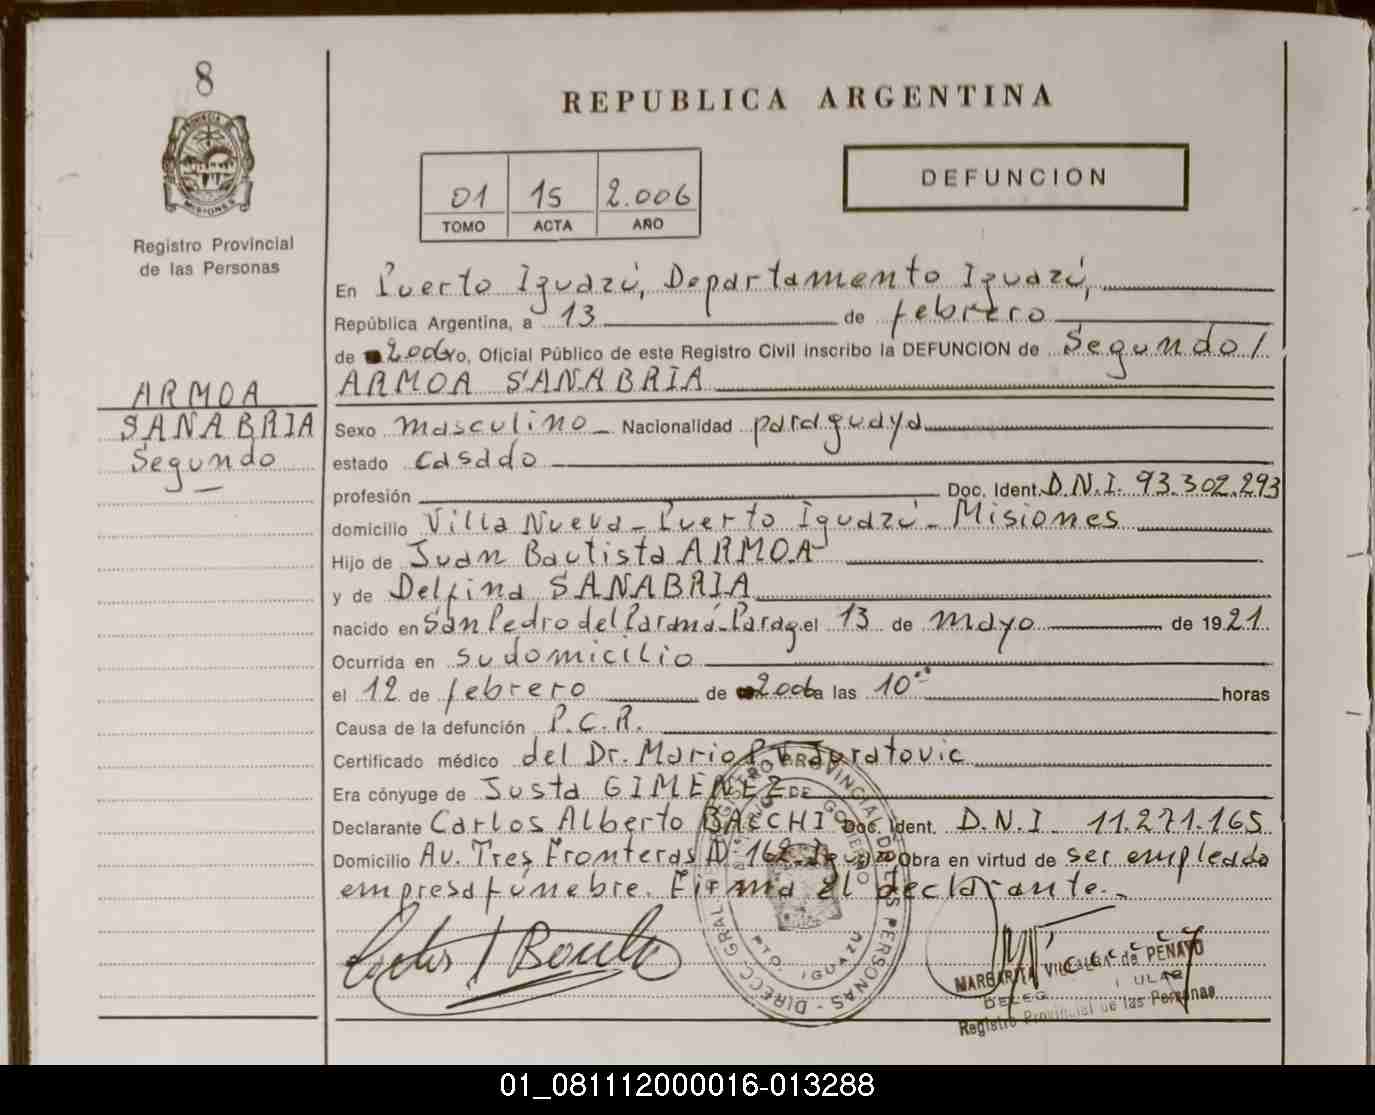 8
REPUBLICA ARGENTINA
PROVINCIA
MISIONES
Registro Provincial
de las Personas
01 15 2.006
TOMO ACTA AÑO
DEFUNCION
En Puerto Iguazú, Departamento Iguazú,
República Argentina, a 13 de febrero
de 2006 yo, Oficial Público de este Registro Civil inscribo la DEFUNCION de Segundo/
ARMOA SANABRIA
ARMOA
SANABRIA
Segundo
Sexo masculino Nacionalidad paraguaya
estado casado
profesión Doc. Ident. D.N.I. 93.302.293
domicilio Villa Nueva - Puerto Iguazú - Misiones
Hijo de Juan Bautista ARMOA
y de Delfina SANABRIA
nacido en San Pedro del Paraná-Parag. el 13 de mayo de 1921
Ocurrida en su domicilio
el 12 de febrero de 2006 a las 10 horas
Causa de la defunción P.C.R.
Certificado médico del Dr. Mario
Era cónyuge de Justa GIMENEZ
Declarante Carlos Alberto BACCHI Doc. Ident. D.N.I. 11.271.165
Domicilio Av. Tres Fronteras N° 162-Iguazú Obra en virtud de ser empleado
empresa fúnebre. Firma el declarante.-
REGISTRO PROVINCIAL DE LAS PERSONAS - DIRECC. GRAL
GOBIERNO
PTO. IGUAZU
MARGARITA VILLALBA de PENAYO
Registro Provincial de las Personas
01_081112000016-013288